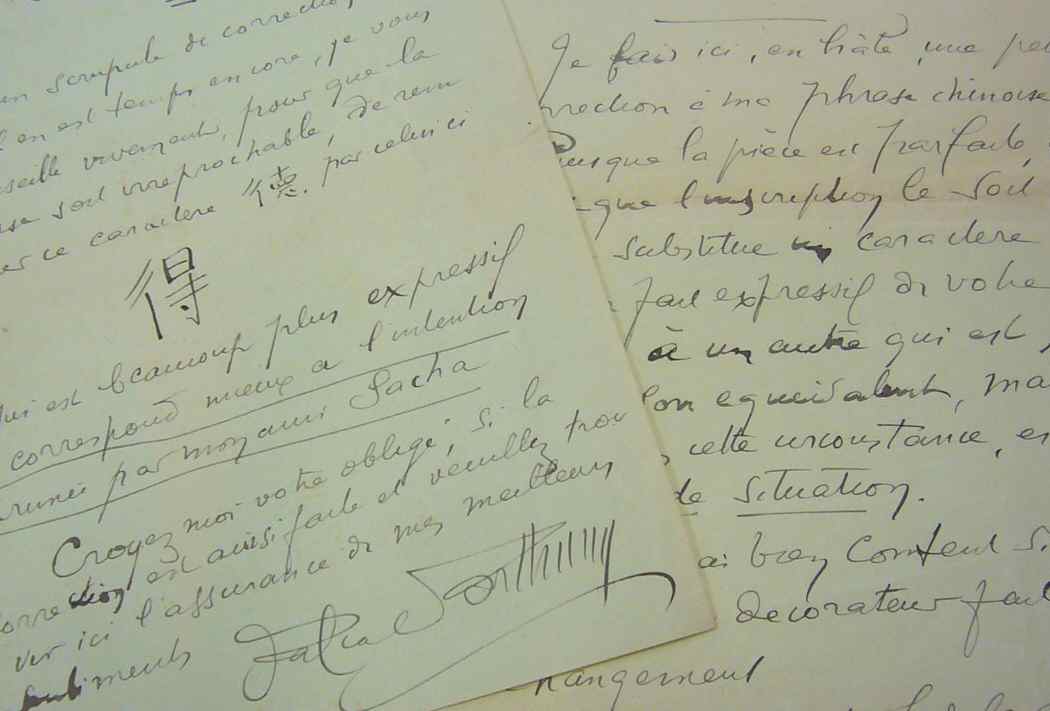 un scrupule de correction
il en est temps encore, je vous
conseille vivement, pour que la
soit irréprochable, de rem
ce caractère 德 par celui ci
得
qui est beaucoup plus expressif
correspond mieux à l'intention
par mon ami Sacha
Croyez moi votre obligé, si la
correction est ainsi faite et veuillez trou
ver ici l'assurance de mes meilleurs
sentiments
Je fais ici, en hâte, une pe
rrection à ma phrase chinoise
Puisque la pièce est parfaite,
que l'inscription le soit
substitue un caractère
fait expressif de votre
à un autre qui est
son équivalent, ma
cette circonstance, es
de situation.
ai bien content s
décorateur fait
hangement